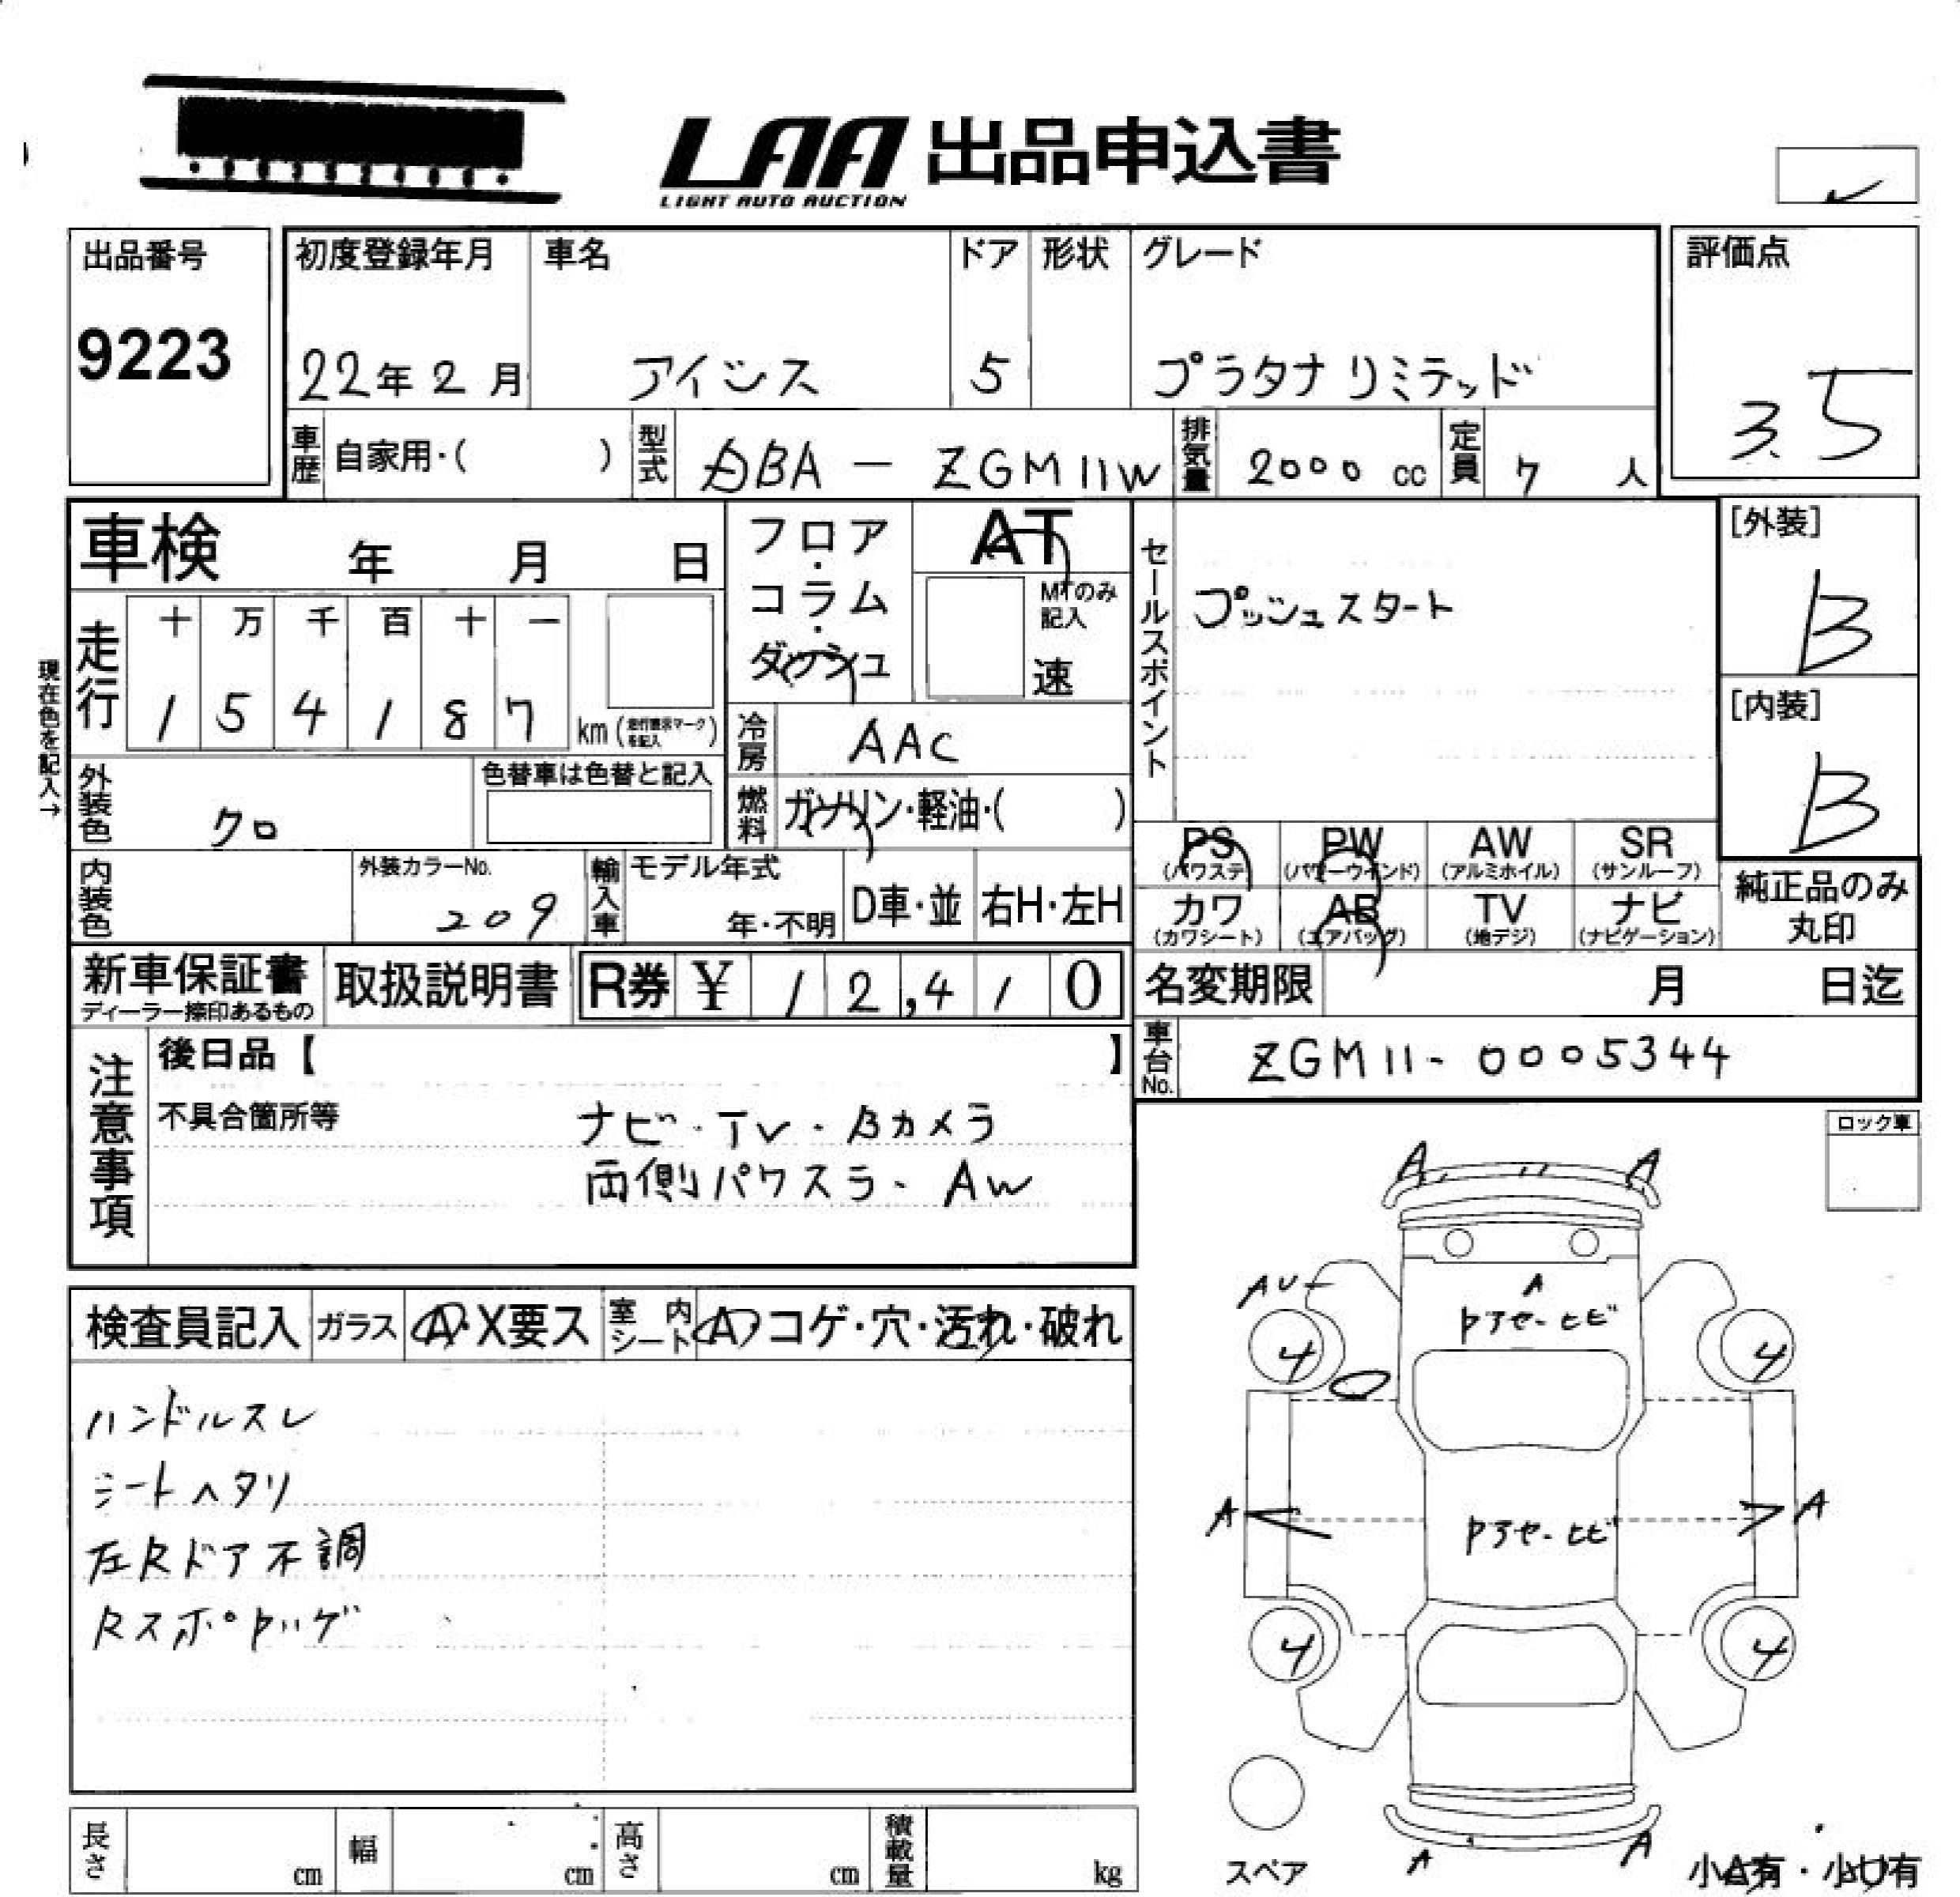 LAA 出品申込書
LIGHT AUTO AUCTION
出品番号
9223
初度登録年月
22年 2 月
車名
アイシス
ドア
5
形状
グレード
プラタナリミテッド
評価点
3.5
車歴 自家用・( )
型式 DBA - ZGM11W
排気量 2000 cc
定員 7 人
車検 年 月 日
現在色を記入→
走行
十 万 千 百 十 一
1 5 4 1 8 7 km
フロア・コラム・ダッシュ
AT
MTのみ記入
速
冷房 AAC
燃料 ガソリン・軽油・( )
セールスポイント
プッシュスタート
[外装]
B
[内装]
B
外装色 クロ
色替車は色替と記入
内装色
外装カラーNo.
209
輸入車
モデル年式
年・不明
D車・並
右H・左H
PS (パワステ)
PW (パワーウインド)
AW (アルミホイル)
SR (サンルーフ)
カワ (カワシート)
AB (エアバッグ)
TV (地デジ)
ナビ (ナビゲーション)
純正品のみ
丸印
新車保証書
ディーラー捺印あるもの
取扱説明書
R券 ¥ 1 2,4 1 0
名変期限 月 日迄
車台No. ZGM11-0005344
注意事項
後日品【 】
不具合箇所等
ナビ・TV・Bカメラ
両側パワスラ・AW
ロック車
検査員記入
ガラス A・X要ス
室内シート A コゲ・穴・汚れ・破れ
ハンドルスレ
シートヘタリ
左Rドア不調
A A
AU
A
4 4
A A
4 4
A A
スペア
小A有・小U有
長さ cm
幅 cm
高さ cm
積載量 kg